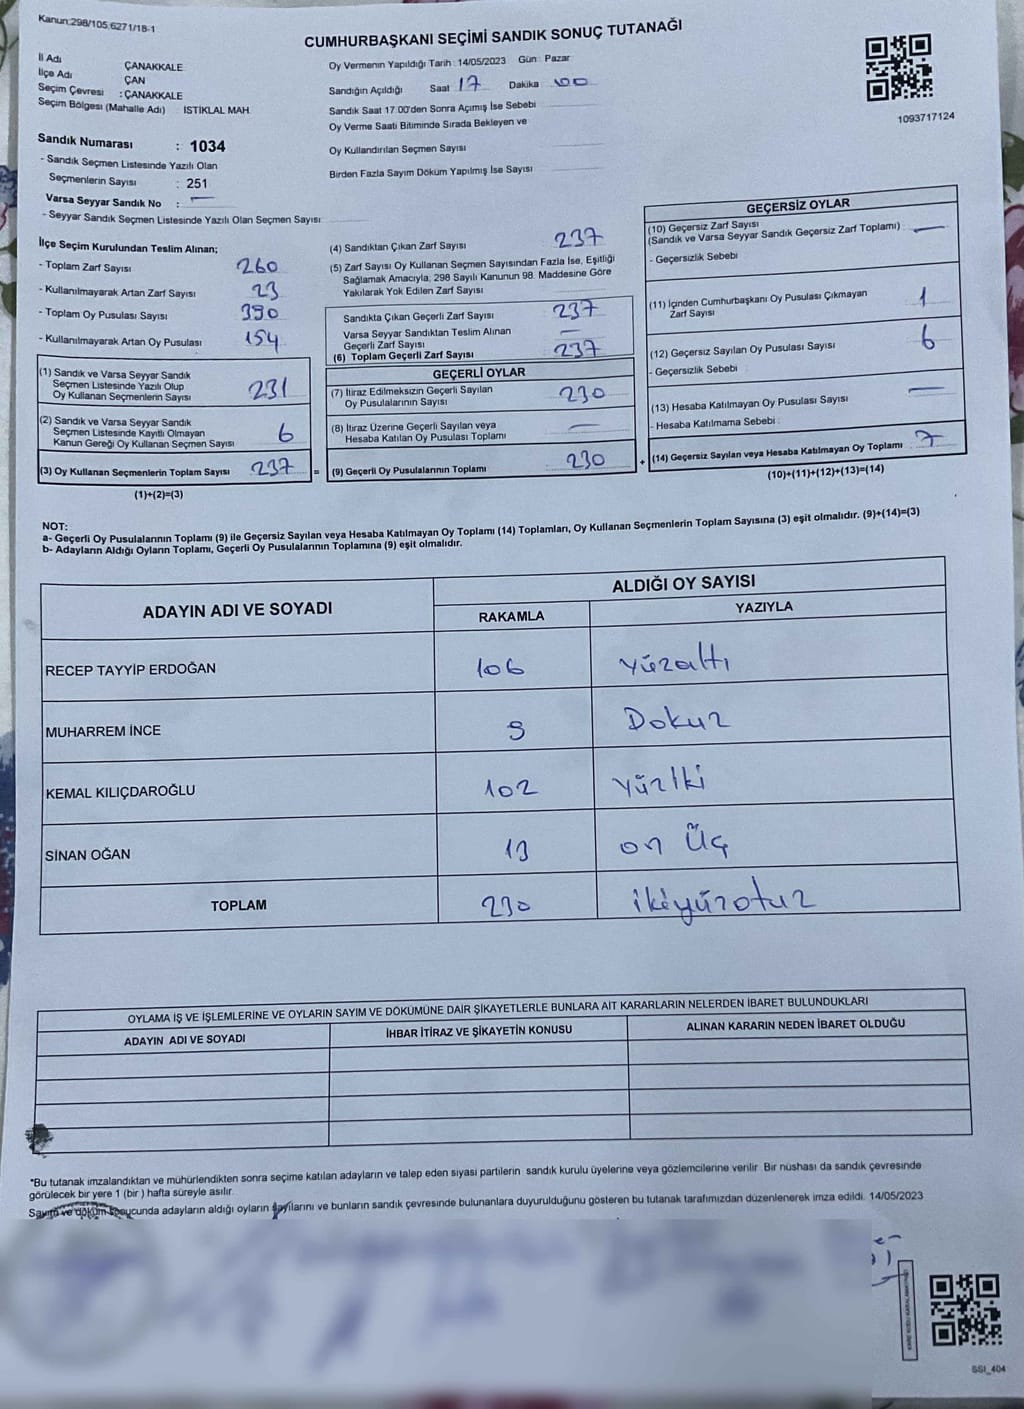 Kanun:298/105;6271/18-1
CUMHURBAŞKANI SEÇİMİ SANDIK SONUÇ TUTANAĞI
İl Adı ÇANAKKALE
İlçe Adı ÇAN
Seçim Çevresi : ÇANAKKALE
Seçim Bölgesi (Mahalle Adı) İSTİKLAL MAH.
Sandık Numarası : 1034
- Sandık Seçmen Listesinde Yazılı Olan
Seçmenlerin Sayısı : 251
Varsa Seyyar Sandık No : —
- Seyyar Sandık Seçmen Listesinde Yazılı Olan Seçmen Sayısı
Oy Vermenin Yapıldığı Tarih : 14/05/2023 Gün : Pazar
Sandığın Açıldığı Saat 17 Dakika 00
Sandık Saat 17:00'den Sonra Açımış İse Sebebi
Oy Verme Saati Bitiminde Sırada Bekleyen ve
Oy Kullandırılan Seçmen Sayısı
Birden Fazla Sayım Döküm Yapılmış İse Sayısı
1093717124
İlçe Seçim Kurulundan Teslim Alınan;
- Toplam Zarf Sayısı 260
- Kullanılmayarak Artan Zarf Sayısı 23
- Toplam Oy Pusulası Sayısı 390
- Kullanılmayarak Artan Oy Pusulası 154
(1) Sandık ve Varsa Seyyar Sandık
Seçmen Listesinde Yazılı Olup
Oy Kullanan Seçmenlerin Sayısı 231
(2) Sandık ve Varsa Seyyar Sandık
Seçmen Listesinde Kayıtlı Olmayan
Kanun Gereği Oy Kullanan Seçmen Sayısı 6
(3) Oy Kullanan Seçmenlerin Toplam Sayısı 237 =
(1)+(2)=(3)
(4) Sandıktan Çıkan Zarf Sayısı 237
(5) Zarf Sayısı Oy Kullanan Seçmen Sayısından Fazla İse, Eşitliği
Sağlamak Amacıyla; 298 Sayılı Kanunun 98. Maddesine Göre
Yakılarak Yok Edilen Zarf Sayısı
Sandıkta Çıkan Geçerli Zarf Sayısı 237
Varsa Seyyar Sandıktan Teslim Alınan
Geçerli Zarf Sayısı —
(6) Toplam Geçerli Zarf Sayısı 237
GEÇERLİ OYLAR
(7) İtiraz Edilmeksizin Geçerli Sayılan
Oy Pusulalarının Sayısı 230
(8) İtiraz Üzerine Geçerli Sayılan veya
Hesaba Katılan Oy Pusulası Toplamı —
(9) Geçerli Oy Pusulalarının Toplamı 230 +
GEÇERSİZ OYLAR
(10) Geçersiz Zarf Sayısı
(Sandık ve Varsa Seyyar Sandık Geçersiz Zarf Toplamı) : —
- Geçersizlik Sebebi
(11) İçinden Cumhurbaşkanı Oy Pusulası Çıkmayan
Zarf Sayısı 1
(12) Geçersiz Sayılan Oy Pusulası Sayısı 6
- Geçersizlik Sebebi
(13) Hesaba Katılmayan Oy Pusulası Sayısı —
- Hesaba Katılmama Sebebi :
(14) Geçersiz Sayılan veya Hesaba Katılmayan Oy Toplamı 7
(10)+(11)+(12)+(13)=(14)
NOT:
a- Geçerli Oy Pusulalarının Toplamı (9) ile Geçersiz Sayılan veya Hesaba Katılmayan Oy Toplamı (14) Toplamları, Oy Kullanan Seçmenlerin Toplam Sayısına (3) eşit olmalıdır. (9)+(14)=(3)
b- Adayların Aldığı Oyların Toplamı, Geçerli Oy Pusulalarının Toplamına (9) eşit olmalıdır.
ADAYIN ADI VE SOYADI ALDIĞI OY SAYISI
RAKAMLA YAZIYLA
RECEP TAYYİP ERDOĞAN 106 yüzaltı
MUHARREM İNCE 9 Dokuz
KEMAL KILIÇDAROĞLU 102 yüziki
SİNAN OĞAN 13 on üç
TOPLAM 230 ikiyüzotuz
OYLAMA İŞ VE İŞLEMLERİNE VE OYLARIN SAYIM VE DÖKÜMÜNE DAİR ŞİKAYETLERLE BUNLARA AİT KARARLARIN NELERDEN İBARET BULUNDUKLARI
ADAYIN ADI VE SOYADI İHBAR İTİRAZ VE ŞİKAYETİN KONUSU ALINAN KARARIN NEDEN İBARET OLDUĞU
*Bu tutanak imzalandıktan ve mühürlendikten sonra seçime katılan adayların ve talep eden siyasi partilerin sandık kurulu üyelerine veya gözlemcilerine verilir. Bir nüshası da sandık çevresinde
görülecek bir yere 1 (bir ) hafta süreyle asılır.
Sayım ve döküm sonucunda adayların aldığı oyların sayılarını ve bunların sandık çevresinde bulunanlara duyurulduğunu gösteren bu tutanak tarafımızdan düzenlenerek imza edildi. 14/05/2023
SSI_404